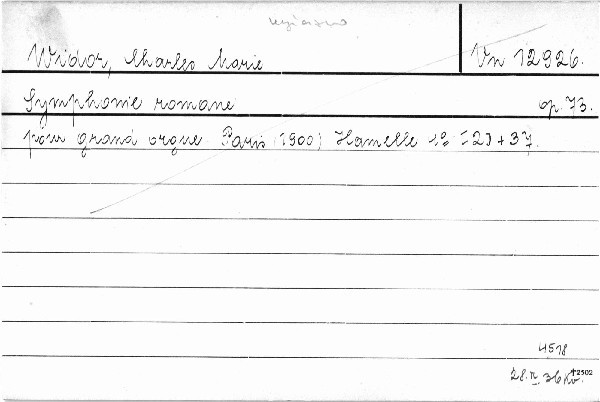 Widor, Charles Marie Vn 12926.
Symphonie romane op. 73.
pour grand orgue. Paris (1900) Hamelle 1º [2] + 37.
4518
28. IV. 36